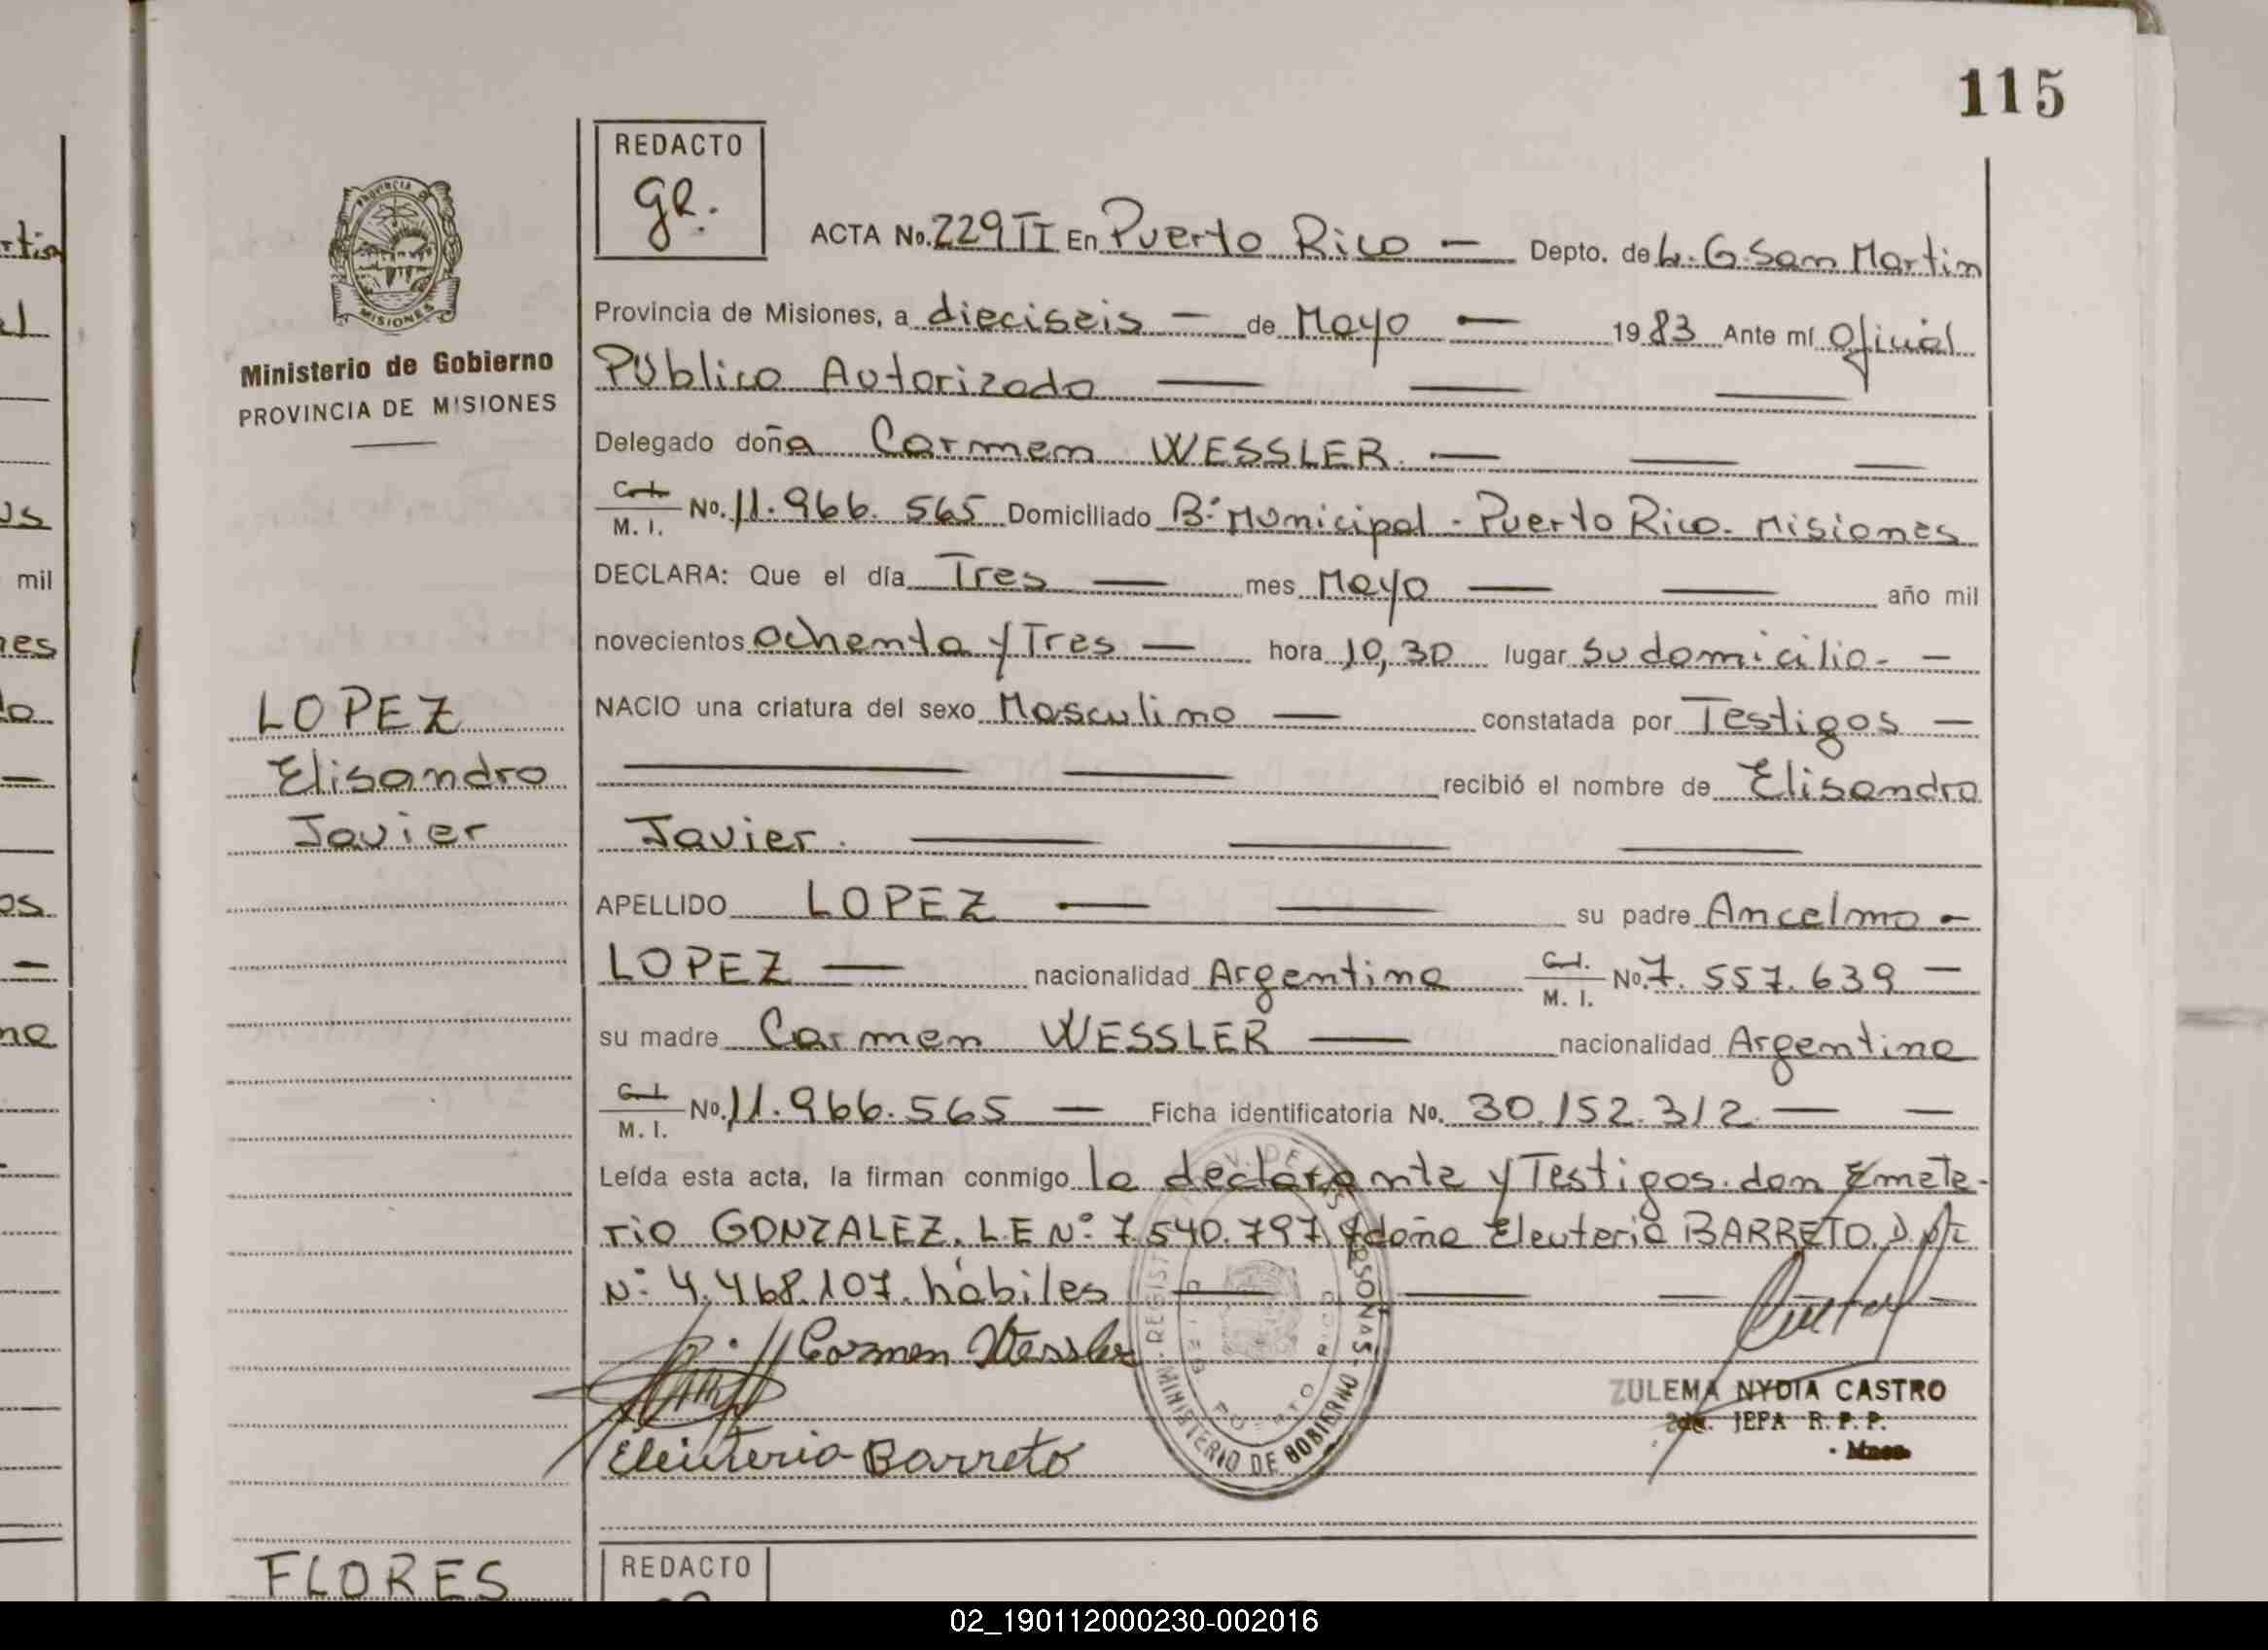 115
REDACTO
ge.
ACTA No. 229 TI En Puerto Rico — Depto. de L. G. San Martin
Provincia de Misiones, a dieciseis — de Mayo — 1983 Ante mí Oficial
Público Autorizado — — —
Delegado doña Carmen WESSLER. — — —
C. I. / M. I. No. 11.966.565 Domiciliado B° Municipal - Puerto Rico - Misiones
DECLARA: Que el día Tres — mes Mayo — — año mil
novecientos ochenta y Tres — hora 10,30 lugar su domicilio - —
NACIO una criatura del sexo Masculino — constatada por Testigos —
— — recibió el nombre de Elisandro
Javier. — — —
APELLIDO LOPEZ — — su padre Ancelmo —
LOPEZ — nacionalidad Argentina C. I. / M. I. No. 7.557.639 —
su madre Carmen WESSLER — nacionalidad Argentina
C. I. / M. I. No. 11.966.565 — Ficha identificatoria No. 30.152.312 — —
Leída esta acta, la firman conmigo la declarante y Testigos. don Emete-
rio GONZALEZ. L.E N° 7.540.797. y doña Eleuteria BARRETO. D.
N° 4.468.107. hábiles — — —
Carmen Wessler
Eleuteria Barreto
MINISTERIO DE GOBIERNO
PUERTO RICO
ZULEMA NYDIA CASTRO
2da. JEFA R. P. P.
Mnes
PROVINCIA DE
MISIONES
Ministerio de Gobierno
PROVINCIA DE MISIONES
LOPEZ
Elisandro
Javier
FLORES
REDACTO
mil
02_190112000230-002016